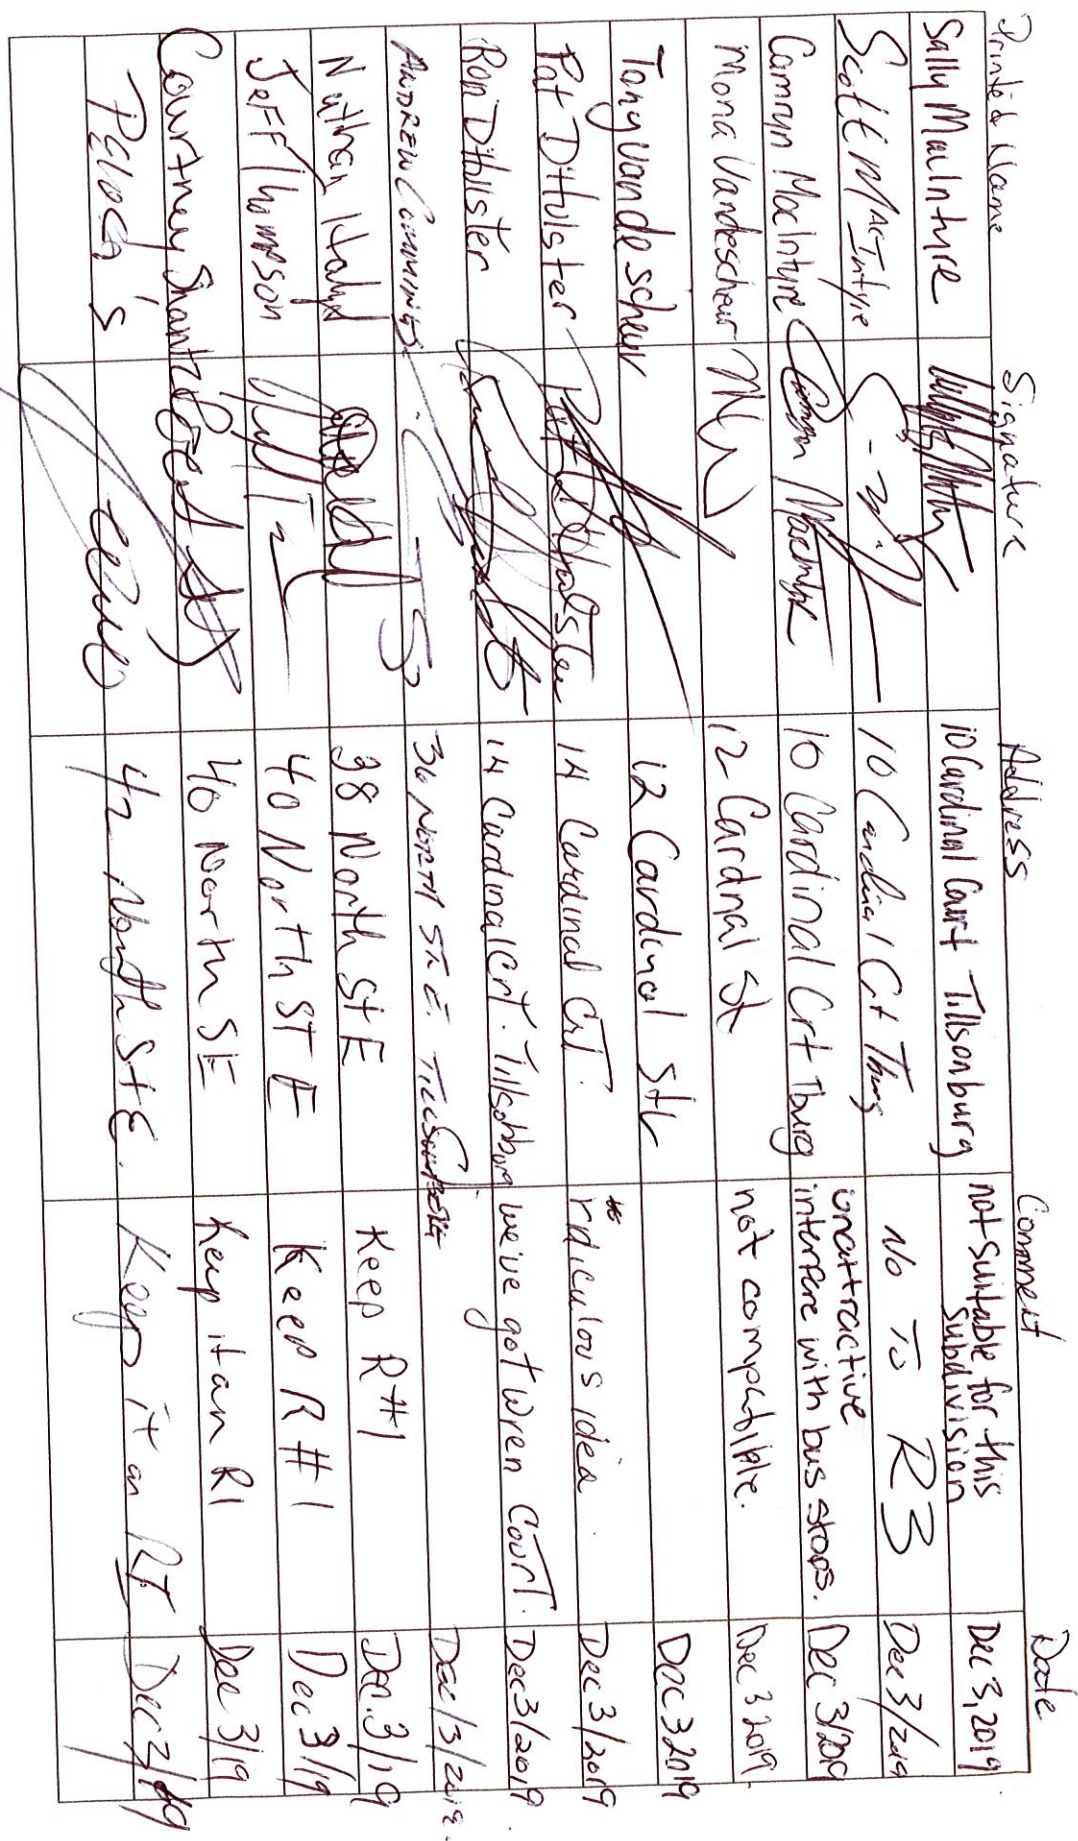 Printed Name Signature Address Comment Date
Sally MacIntyre 10 Cardinal Court Tillsonburg not suitable for this subdivision Dec 3, 2019
Scott MacIntyre 10 Cardinal Crt Tburg No To R3 Dec 3/2019
Camryn MacIntyre Camryn MacIntyre 10 Cardinal Crt Tburg unattractive interfere with bus stops. Dec 3/2019
Mona Vandescheur MV 12 Cardnal St not compatible. Dec 3 2019
Tony Vandescheur 12 Cardinal Str Dec 3 2019
Pat DHulster Pat DHulster 14 Cardinal Crt. rediculous idea. Dec 3/2019
Ron DHulster 14 Cardinal Crt. Tillsonburg we've got Wren Court. Dec 3/2019
Andrew Cummings 36 North St. E. Tillsonburg Dec/3/2019.
Nathan 38 North St E Keep R#1 Dec. 3/19
Jeff Thompson 40 North ST E Keep R#1 Dec 3/19
Courtney Shantz 40 North SE Keep it an R1 Dec 3/19
42 North St E. Keep it an R1 Dec 3/19